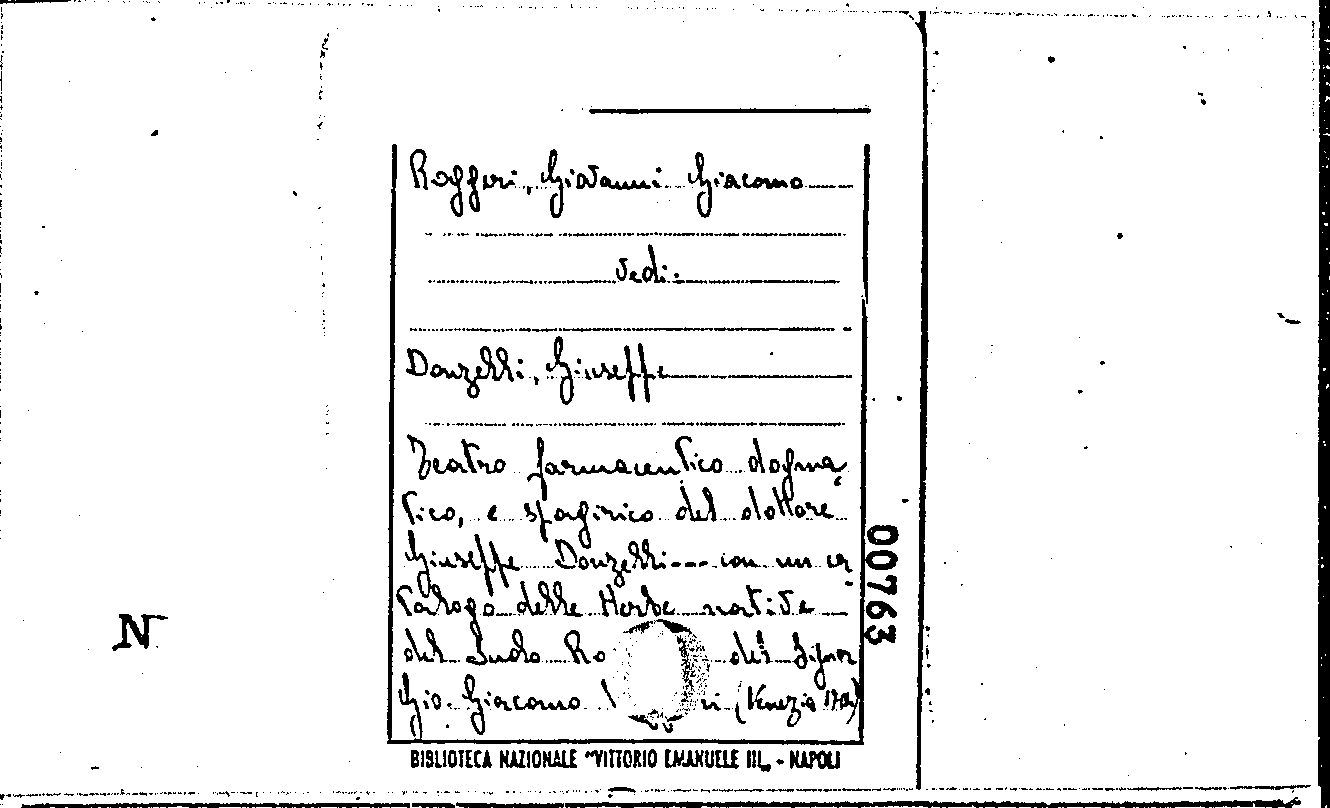 Roggeri, Giovanni Giacomo
Vedi:
Donzelli, Giuseppe
Teatro farmaceutico dogma
tico, e spagirico del dottore
Giuseppe Donzelli--- con un ca
talogo delle Herbe native
del Suolo Ro del Signor
Gio. Giacomo (Venezia
BIBLIOTECA NAZIONALE "VITTORIO EMANUELE III„ - NAPOLI
00763
N